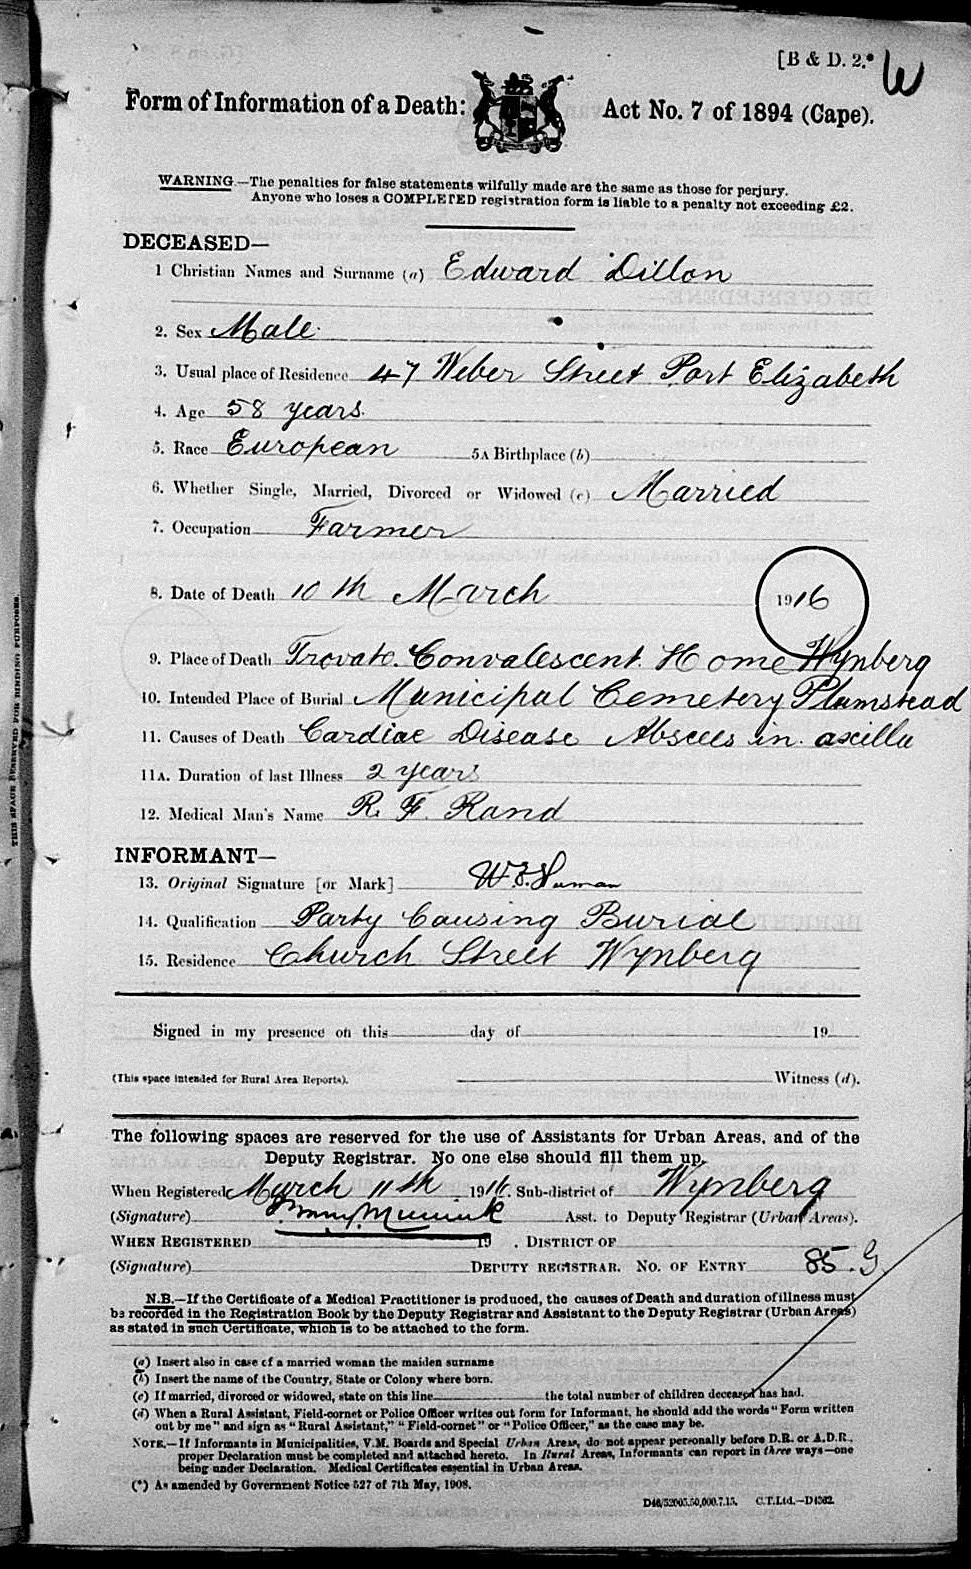 [B & D. 2.* W
Form of Information of a Death: Act No. 7 of 1894 (Cape).
WARNING.—The penalties for false statements wilfully made are the same as those for perjury.
Anyone who loses a COMPLETED registration form is liable to a penalty not exceeding £2.
DECEASED—
1 Christian Names and Surname (a) Edward Dillon
2. Sex Male
3. Usual place of Residence 47 Weber Street Port Elizabeth
4. Age 58 years
5. Race European 5A Birthplace (b)
6. Whether Single, Married, Divorced or Widowed (c) Married
7. Occupation Farmer
8. Date of Death 10th March 1916
9. Place of Death Trovato Convalescent Home Wynberg
10. Intended Place of Burial Municipal Cemetery Plumstead
11. Causes of Death Cardiac Disease Abscess in axilla
11A. Duration of last Illness 2 years
12. Medical Man's Name R. F. Rand
INFORMANT—
13. Original Signature [or Mark]
14. Qualification Party Causing Burial
15. Residence Church Street Wynberg
Signed in my presence on this day of 19
(This space intended for Rural Area Reports). Witness (d).
The following spaces are reserved for the use of Assistants for Urban Areas, and of the
Deputy Registrar. No one else should fill them up.
When Registered March 11th 1916. Sub-district of Wynberg
(Signature) Asst. to Deputy Registrar (Urban Areas).
WHEN REGISTERED 19 . DISTRICT OF
(Signature) DEPUTY REGISTRAR. NO. OF ENTRY 85. G
N.B.—If the Certificate of a Medical Practitioner is produced, the causes of Death and duration of illness must
be recorded in the Registration Book by the Deputy Registrar and Assistant to the Deputy Registrar (Urban Areas)
as stated in such Certificate, which is to be attached to the form.
(a) Insert also in case of a married woman the maiden surname
(b) Insert the name of the Country, State or Colony where born.
(c) If married, divorced or widowed, state on this line the total number of children deceased has had.
(d) When a Rural Assistant, Field-cornet or Police Officer writes out form for Informant, he should add the words "Form written
out by me" and sign as "Rural Assistant," "Field-cornet" or "Police Officer," as the case may be.
NOTE.—If Informants in Municipalities, V.M. Boards and Special Urban Areas, do not appear personally before D.R. or A.D.R.,
proper Declaration must be completed and attached hereto. In Rural Areas, Informants can report in three ways—one
being under Declaration. Medical Certificates essential in Urban Areas.
(*) As amended by Government Notice 527 of 7th May, 1908.
D46/52005.50,000.7.15. C.T.Ltd.—D4362.
THIS SPACE RESERVED FOR BINDING PURPOSES.